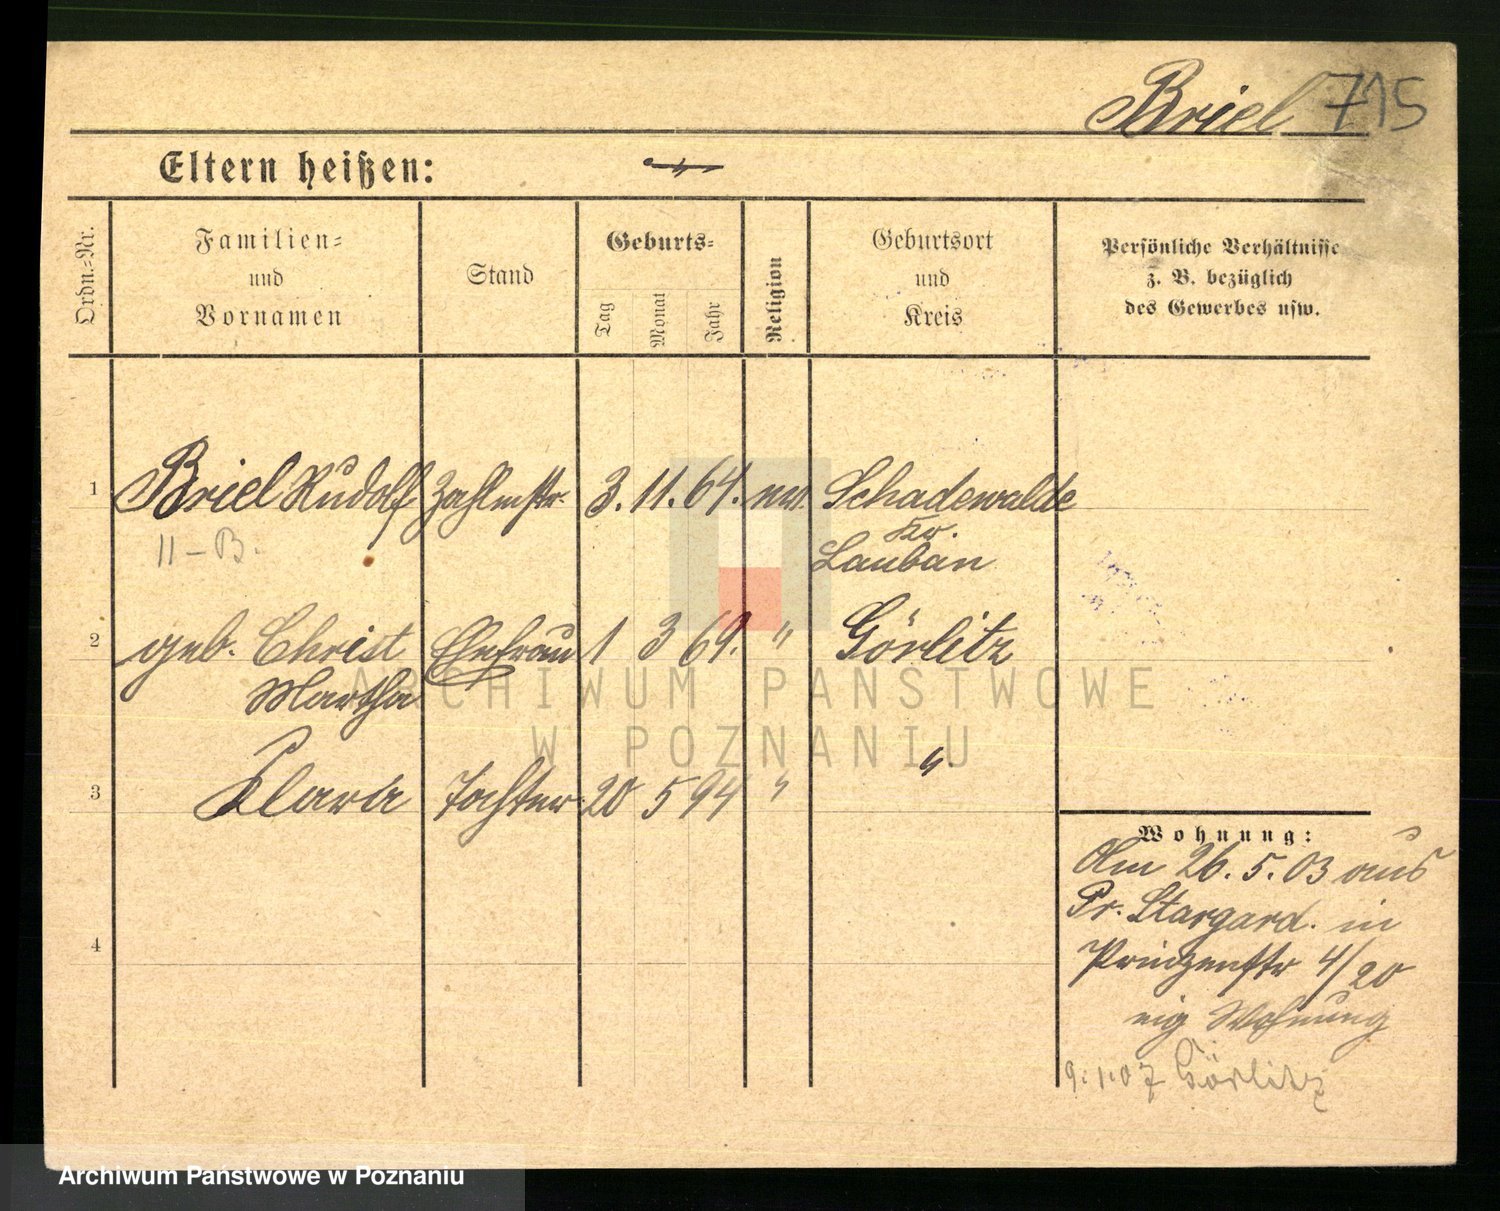 Briel 715
Eltern heißen:
Ordn.=Nr.
Familien=
und
Vornamen
Stand
Geburts=
Tag
Monat
Jahr
Religion
Geburtsort
und
Kreis
Persönliche Verhältnisse
z. B. bezüglich
des Gewerbes usw.
1 Briel Rudolf Zahlmstr. 3. 11. 64. Schadewalde
Kr.
Lauban
II - B.
2 geb. Christ Ehefrau 1 3 69. " Görlitz
Martha
3 Klara Tochter 20 5 94 " "
4
Wohnung:
Am 26. 5. 03 aus
Pr. Stargard. in
Prinzenstr 4/20
eig Wohnung
9. 1. 07 Görlitz
ARCHIWUM PAŃSTWOWE
W POZNANIU
Archiwum Państwowe w Poznaniu